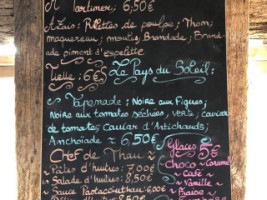 Mortimer; 6,50€
Rillettes de poulpe; Thon;
maquereau; moules; Brandade; Brand-
ade piment d'espelette
Tielle: 6€
Le Pays du Soleil:
Tapenade: Noire aux Figues;
Noire aux tomates séchées, verte; caviar
de tomates; Caviar d'Artichauds;
Anchoïade ~ 6,50€
Glaces 5€
Chef de Thau:
Choco ~ Caramel
Pâtes d'huîtres: 7,00€
~ Café ~
Salade d'huîtres: 8,50€
Vanille ~
Sauce 6,50€
Fraise